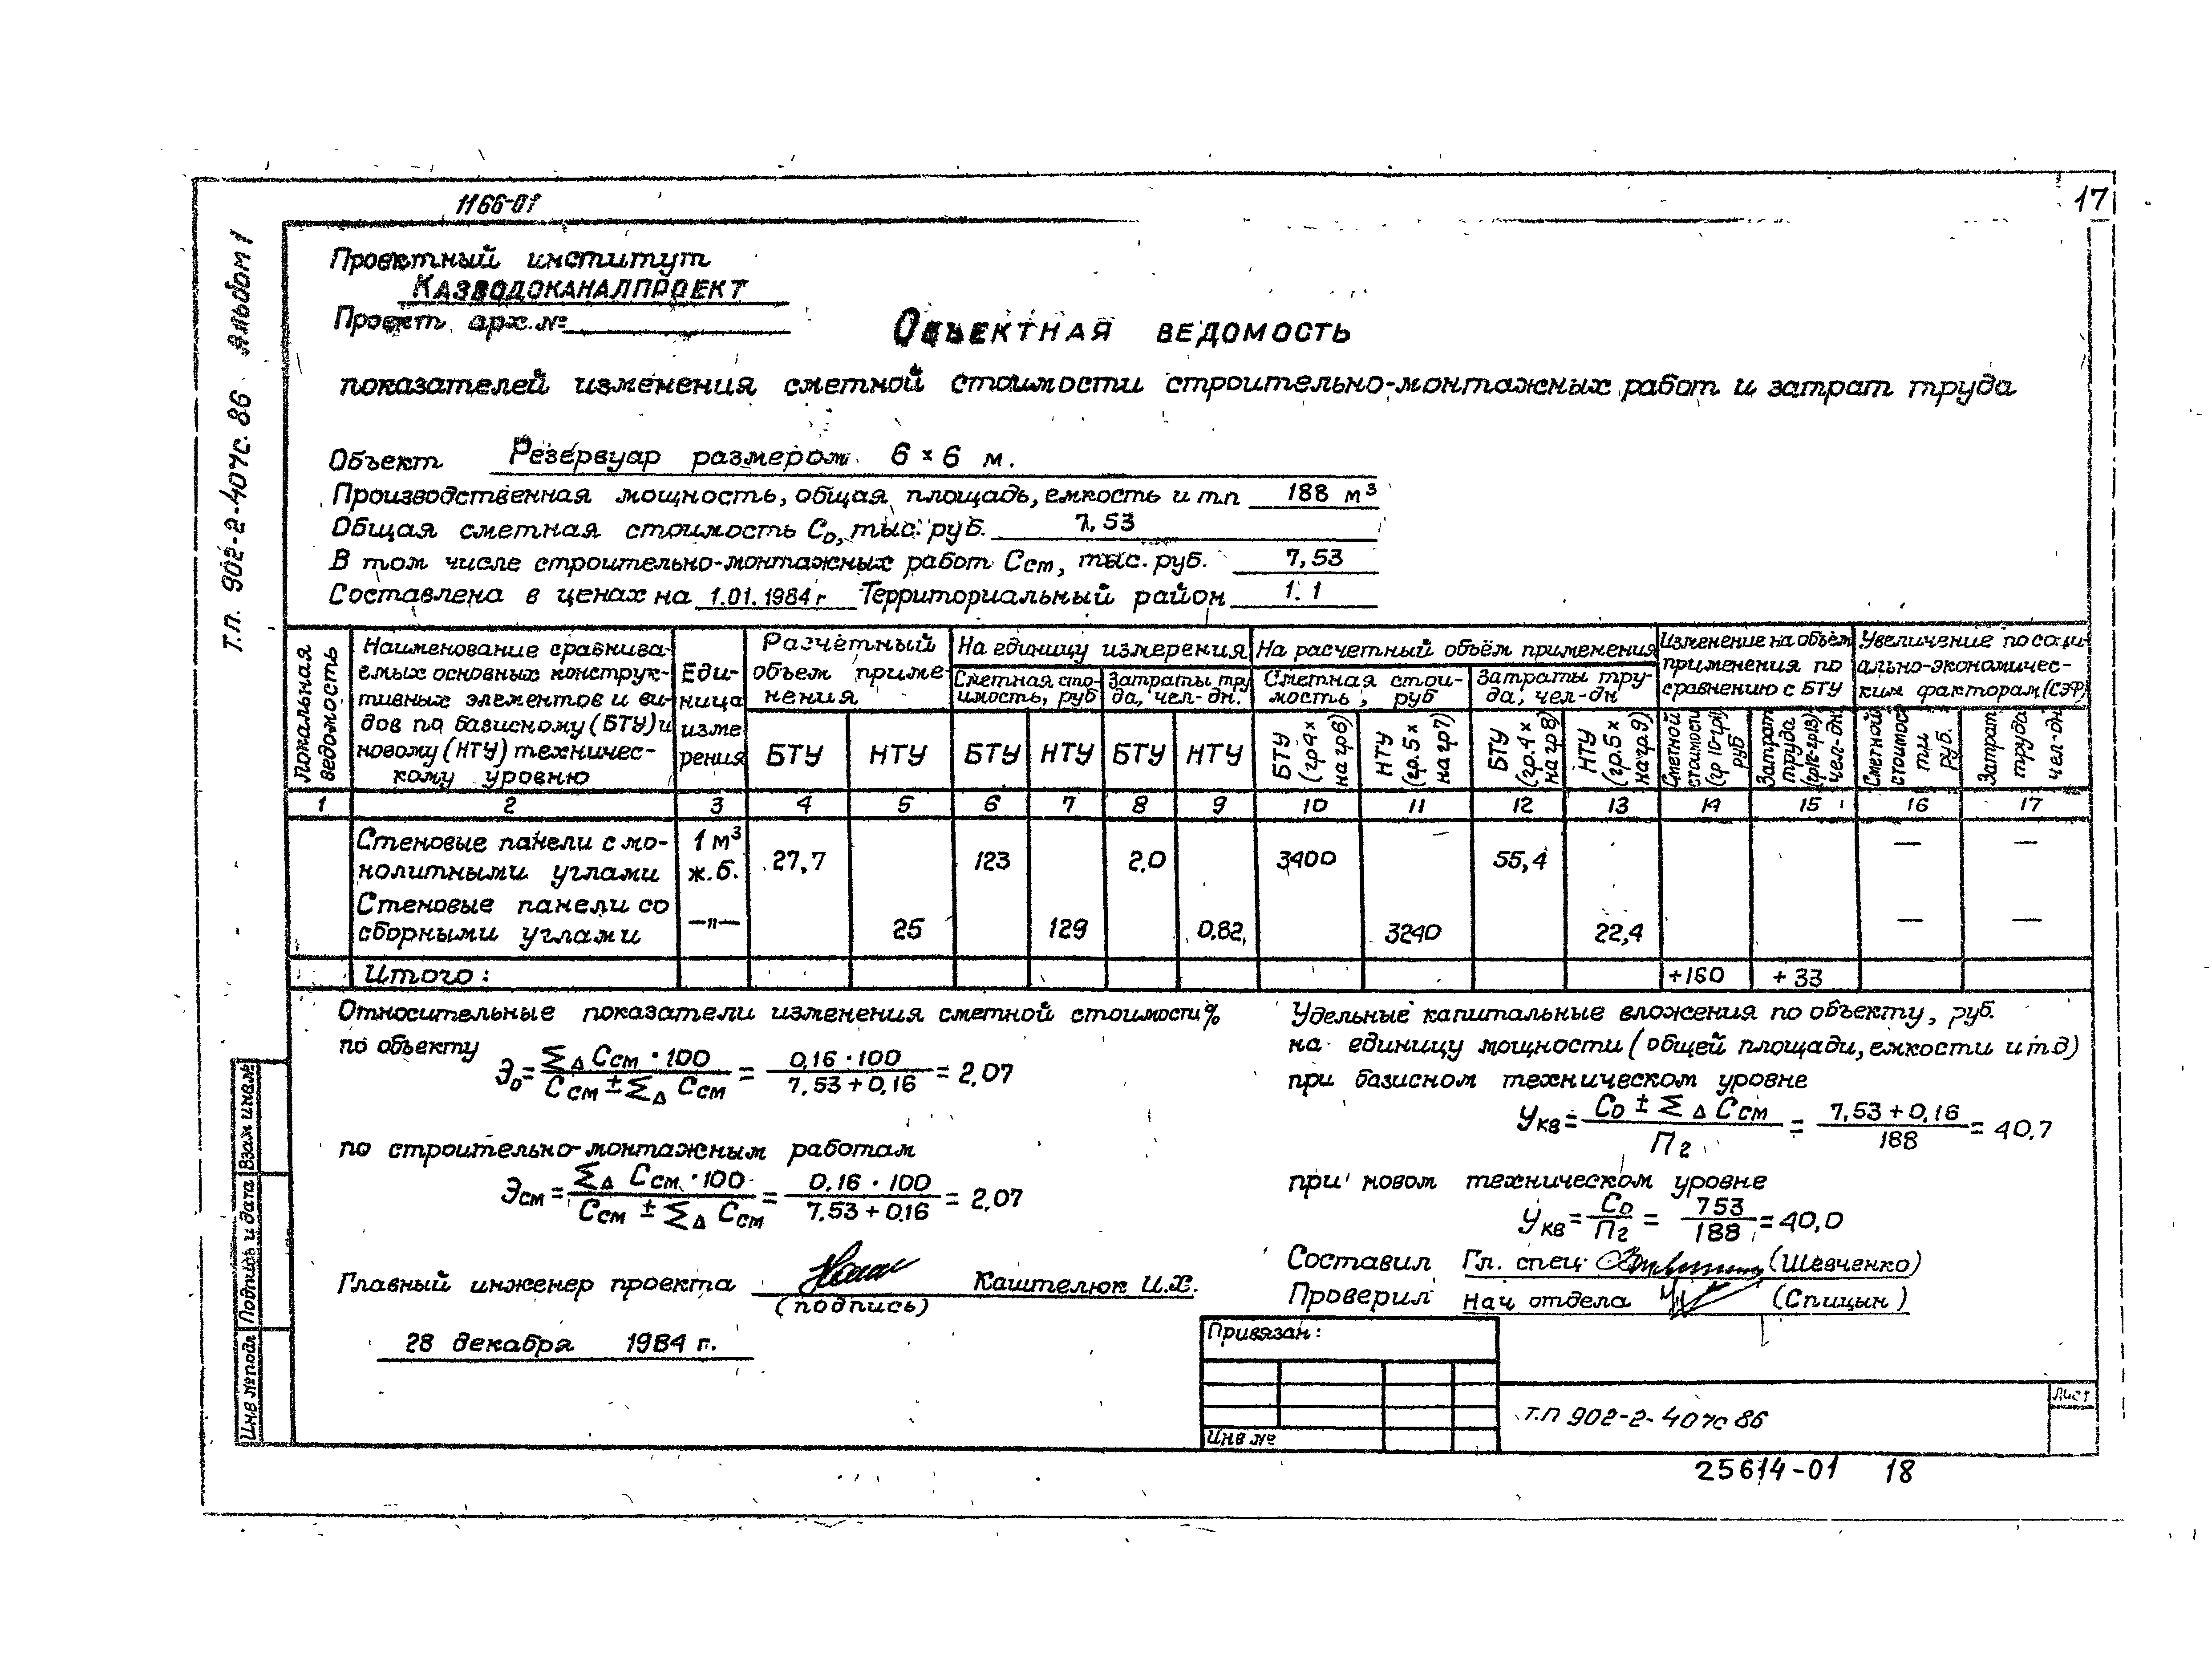 1166-01
17
Т.П. 902-2-407с.86 Альбом 1
Проектный институт
КАЗВОДОКАНАЛПРОЕКТ
Проект арх.№
ОБЪЕКТНАЯ ВЕДОМОСТЬ
показателей изменения сметной стоимости строительно-монтажных работ и затрат труда
Объект Резервуар размером 6×6 м.
Производственная мощность, общая площадь, емкость и т.п 188 м³
Общая сметная стоимость Со, тыс. руб. 7,53
В том числе строительно-монтажных работ Ссм, тыс. руб. 7,53
Составлена в ценах на 1.01.1984г Территориальный район 1.1
Локальная ведомость
Наименование сравнива-
емых основных конструк-
тивных элементов и ви-
дов по базисному (БТУ) и
новому (НТУ) техничес-
кому уровню
Еди-
ница
изме
рения
Расчётный
объем приме-
нения
БТУ НТУ
На единицу измерения
Сметная сто-
имость, руб
Затраты тру
да, чел-дн.
БТУ НТУ БТУ НТУ
На расчетный объём применения
Сметная стои-
мость, руб
Затраты тру-
да, чел-дн
БТУ (гр4× на гр6)
НТУ (гр.5× на гр7)
БТУ (гр.4× на гр8)
НТУ (гр.5× на гр.9)
Изменение на объём
применения по
сравнению с БТУ
Сметной стоимости (гр10-гр11) руб
Затрат труда (гр12-гр13) чел-дн
Увеличение по соци-
ально-экономичес-
ким факторам (СЭФ)
Сметной стоимос тыс. руб.
Затрат труда чел-дн
1 2 3 4 5 6 7 8 9 10 11 12 13 14 15 16 17
Стеновые панели с мо- 1 м³ — —
нолитными углами ж.б. 27,7 123 2.0 3400 55,4
Стеновые панели со
сборными углами —"— 25 129 0.82 3240 22,4 — —
Итого: +160 +33
Относительные показатели изменения сметной стоимости %
по объекту
Эо = ΣΔ Ссм · 100 / Ссм ± ΣΔ Ссм = 0,16 · 100 / 7.53 + 0,16 = 2,07
по строительно-монтажным работам
Эсм = ΣΔ Ссм · 100 / Ссм ± ΣΔ Ссм = 0.16 · 100 / 7.53 + 0.16 = 2,07
Главный инженер проекта Каштелюк И.Х.
(подпись)
28 декабря 1984 г.
Удельные капитальные вложения по объекту, руб.
на единицу мощности (общей площади, емкости и т.д)
при базисном техническом уровне
Укв = Со ± ΣΔ Ссм / Пг = 7,53 + 0,16 / 188 = 40,7
при новом техническом уровне
Укв = Со / Пг = 753 / 188 = 40,0
Составил Гл. спец (Шевченко)
Проверил Нач отдела (Спицын)
Привязан:
Инв №
Т.П 902-2-407с 86
Лист
Инв № подл Подпись и дата Взам инв.№
25614-01 18